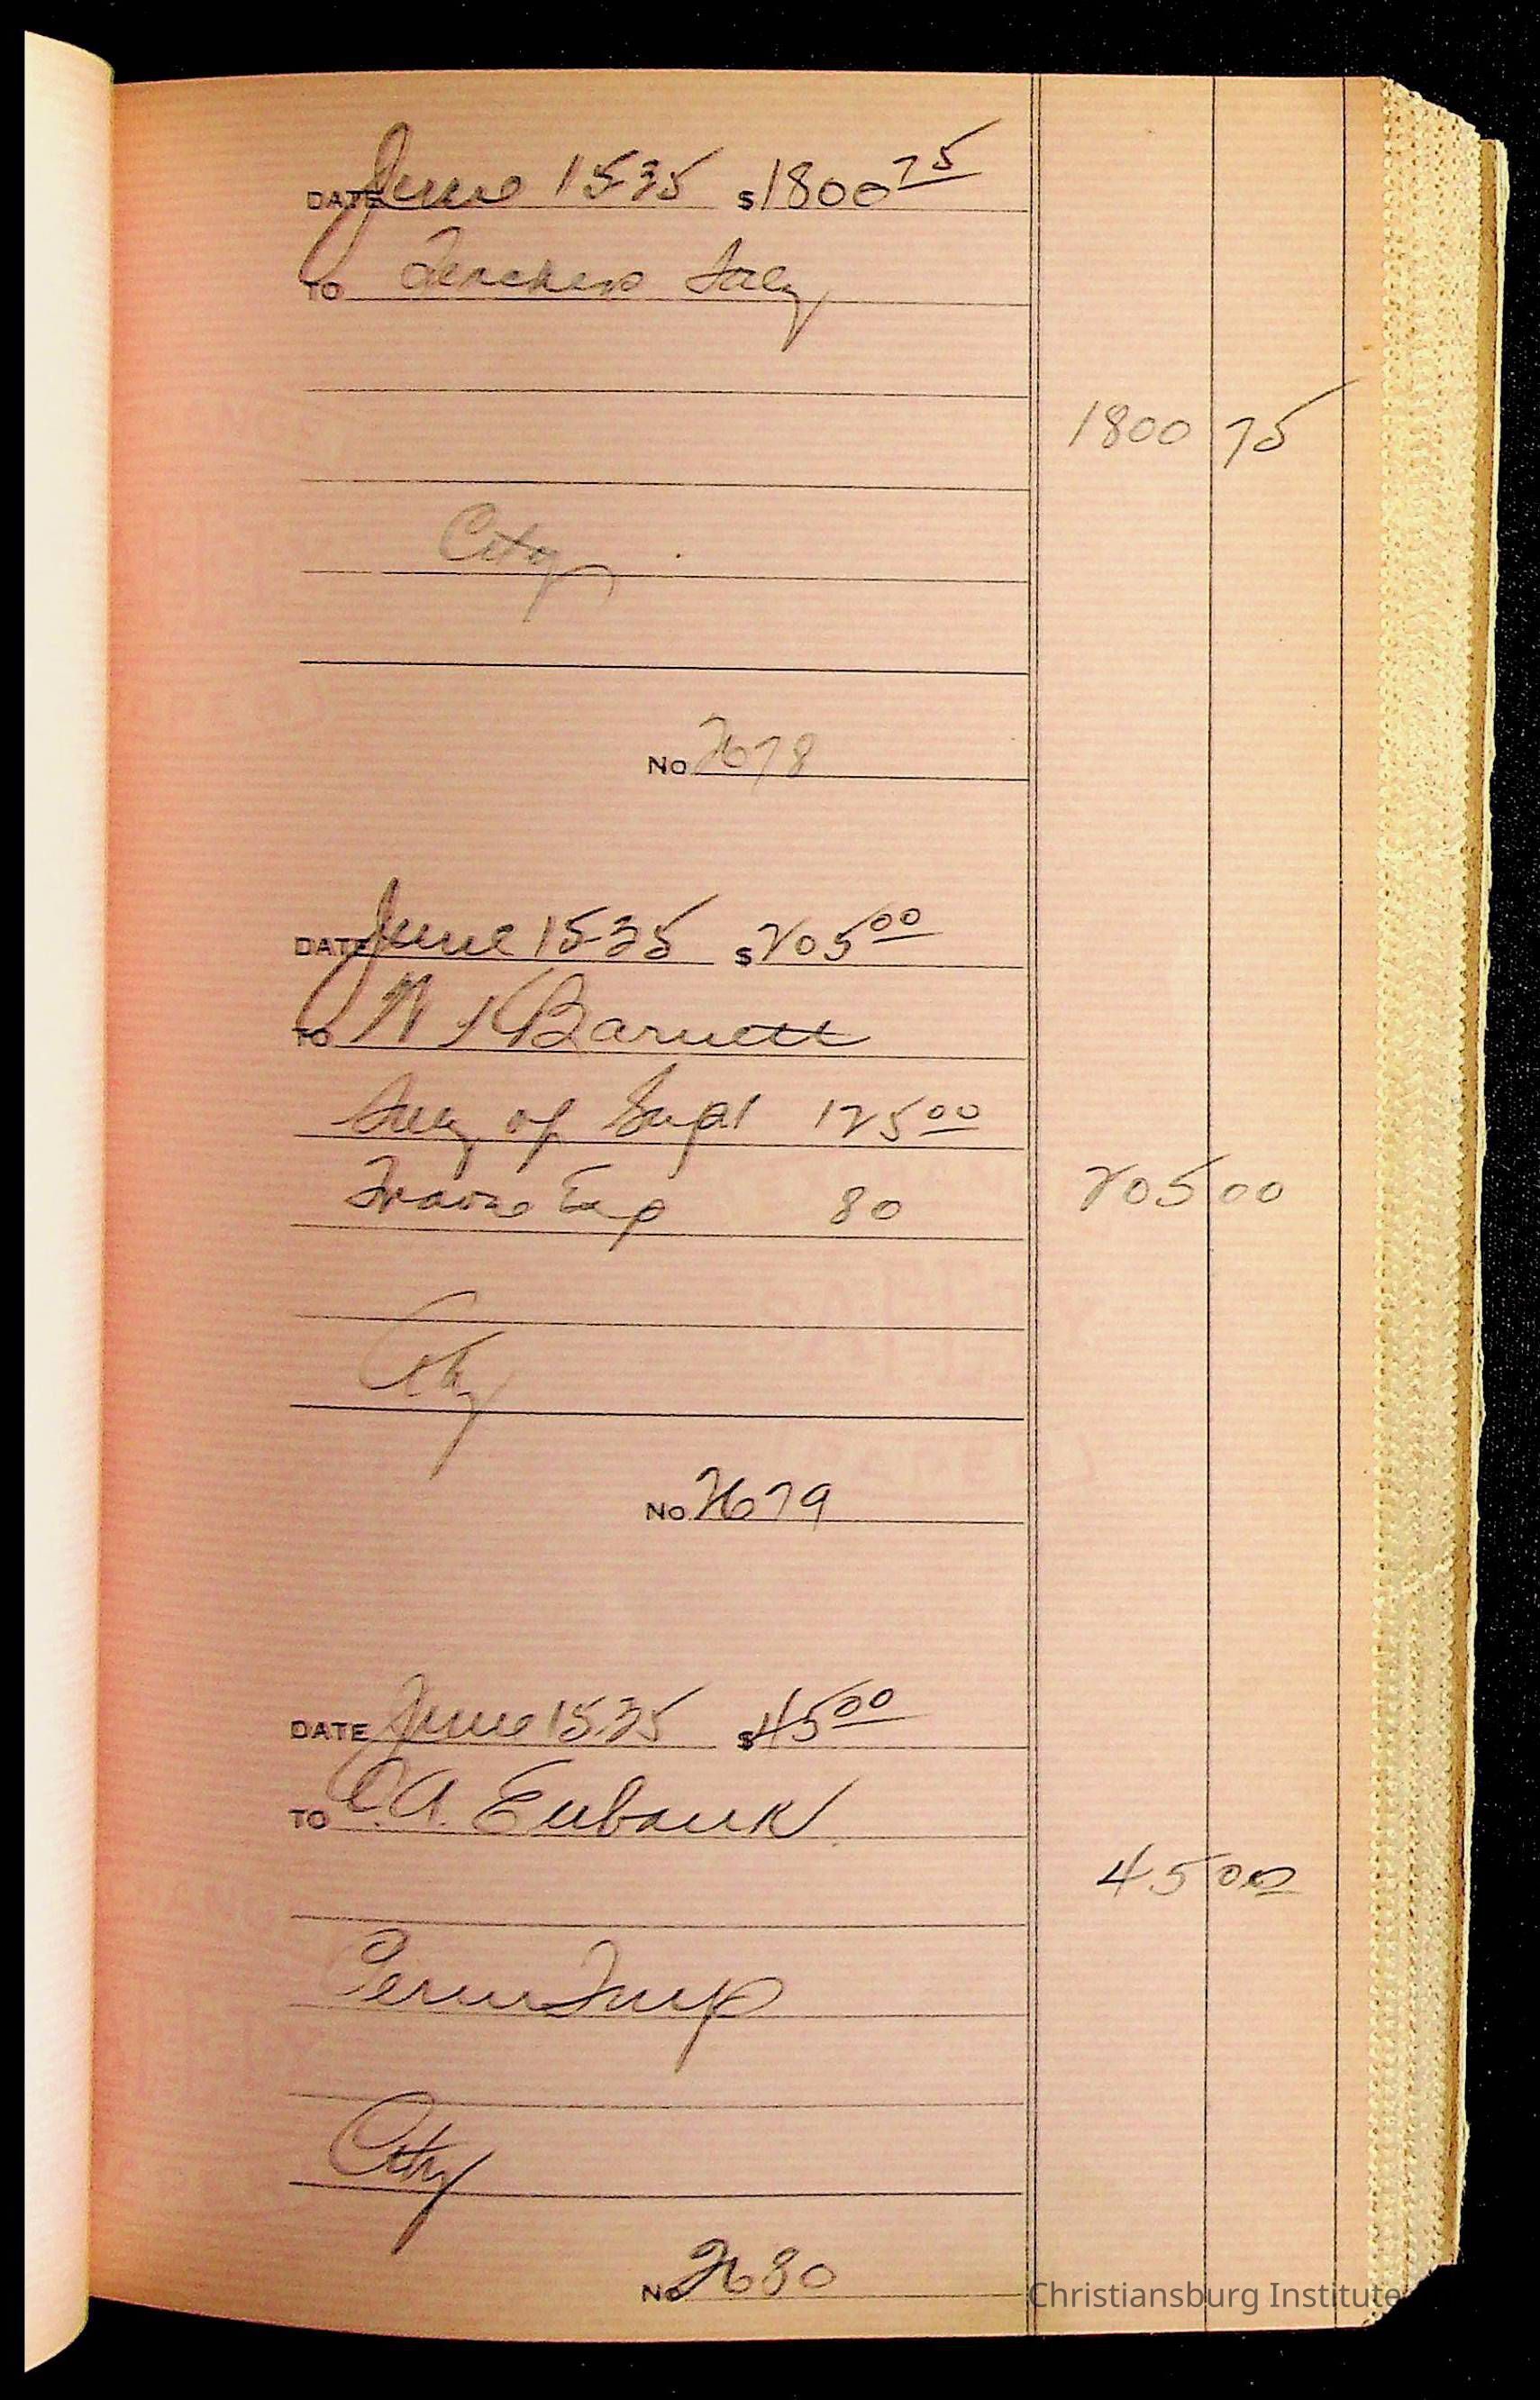 DATE June 15-35 $1800 75
TO Teachers Saly
1800 75
City
No 2678
DATE June 15-35 $205 00
TO Barnett
Saly of Supt 125 00
Exp 80
205 00
City
No. 2679
DATE June 15-35 $45 00
TO C.A. Eubank
45 00
Perm Imp
City
No 2680
Christiansburg Institute